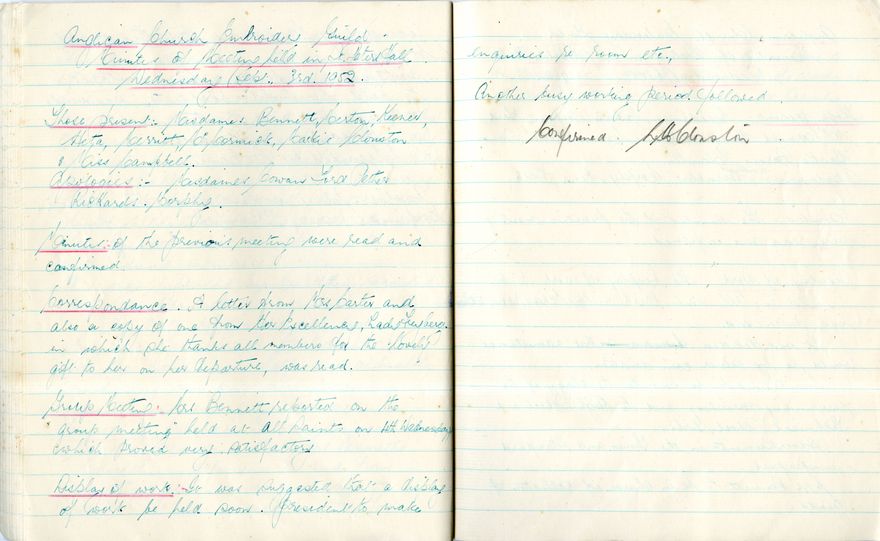 Anglican Church Embroidery Guild.
Minutes of Meeting held in St. Peters Hall
Wednesday Sept. 3rd. 1952.
Those present:- Mesdames Bennett, Berton, Keener,
Merriot, McCormick, Clouston
& Miss Campbell.
Apologies:- Mesdames Cowan Ford
Rickards. Murphy.
Minutes: of the previous meeting were read and
confirmed.
Correspondance. A letter from Mrs Carter and
also a copy of one from Her Excellency, Lady
in which she thanks all members for the "lovely"
gift to her on her departure, was read.
Group Meeting:- Mrs Bennett reported on the
group meeting held at All Saints on 4th Wednesday
which proved very satisfactory
Display of work:- It was suggested that a display
of work be held soon. President to make
enquiries re room etc.,
Another busy working period followed.
Confirmed. Clouston